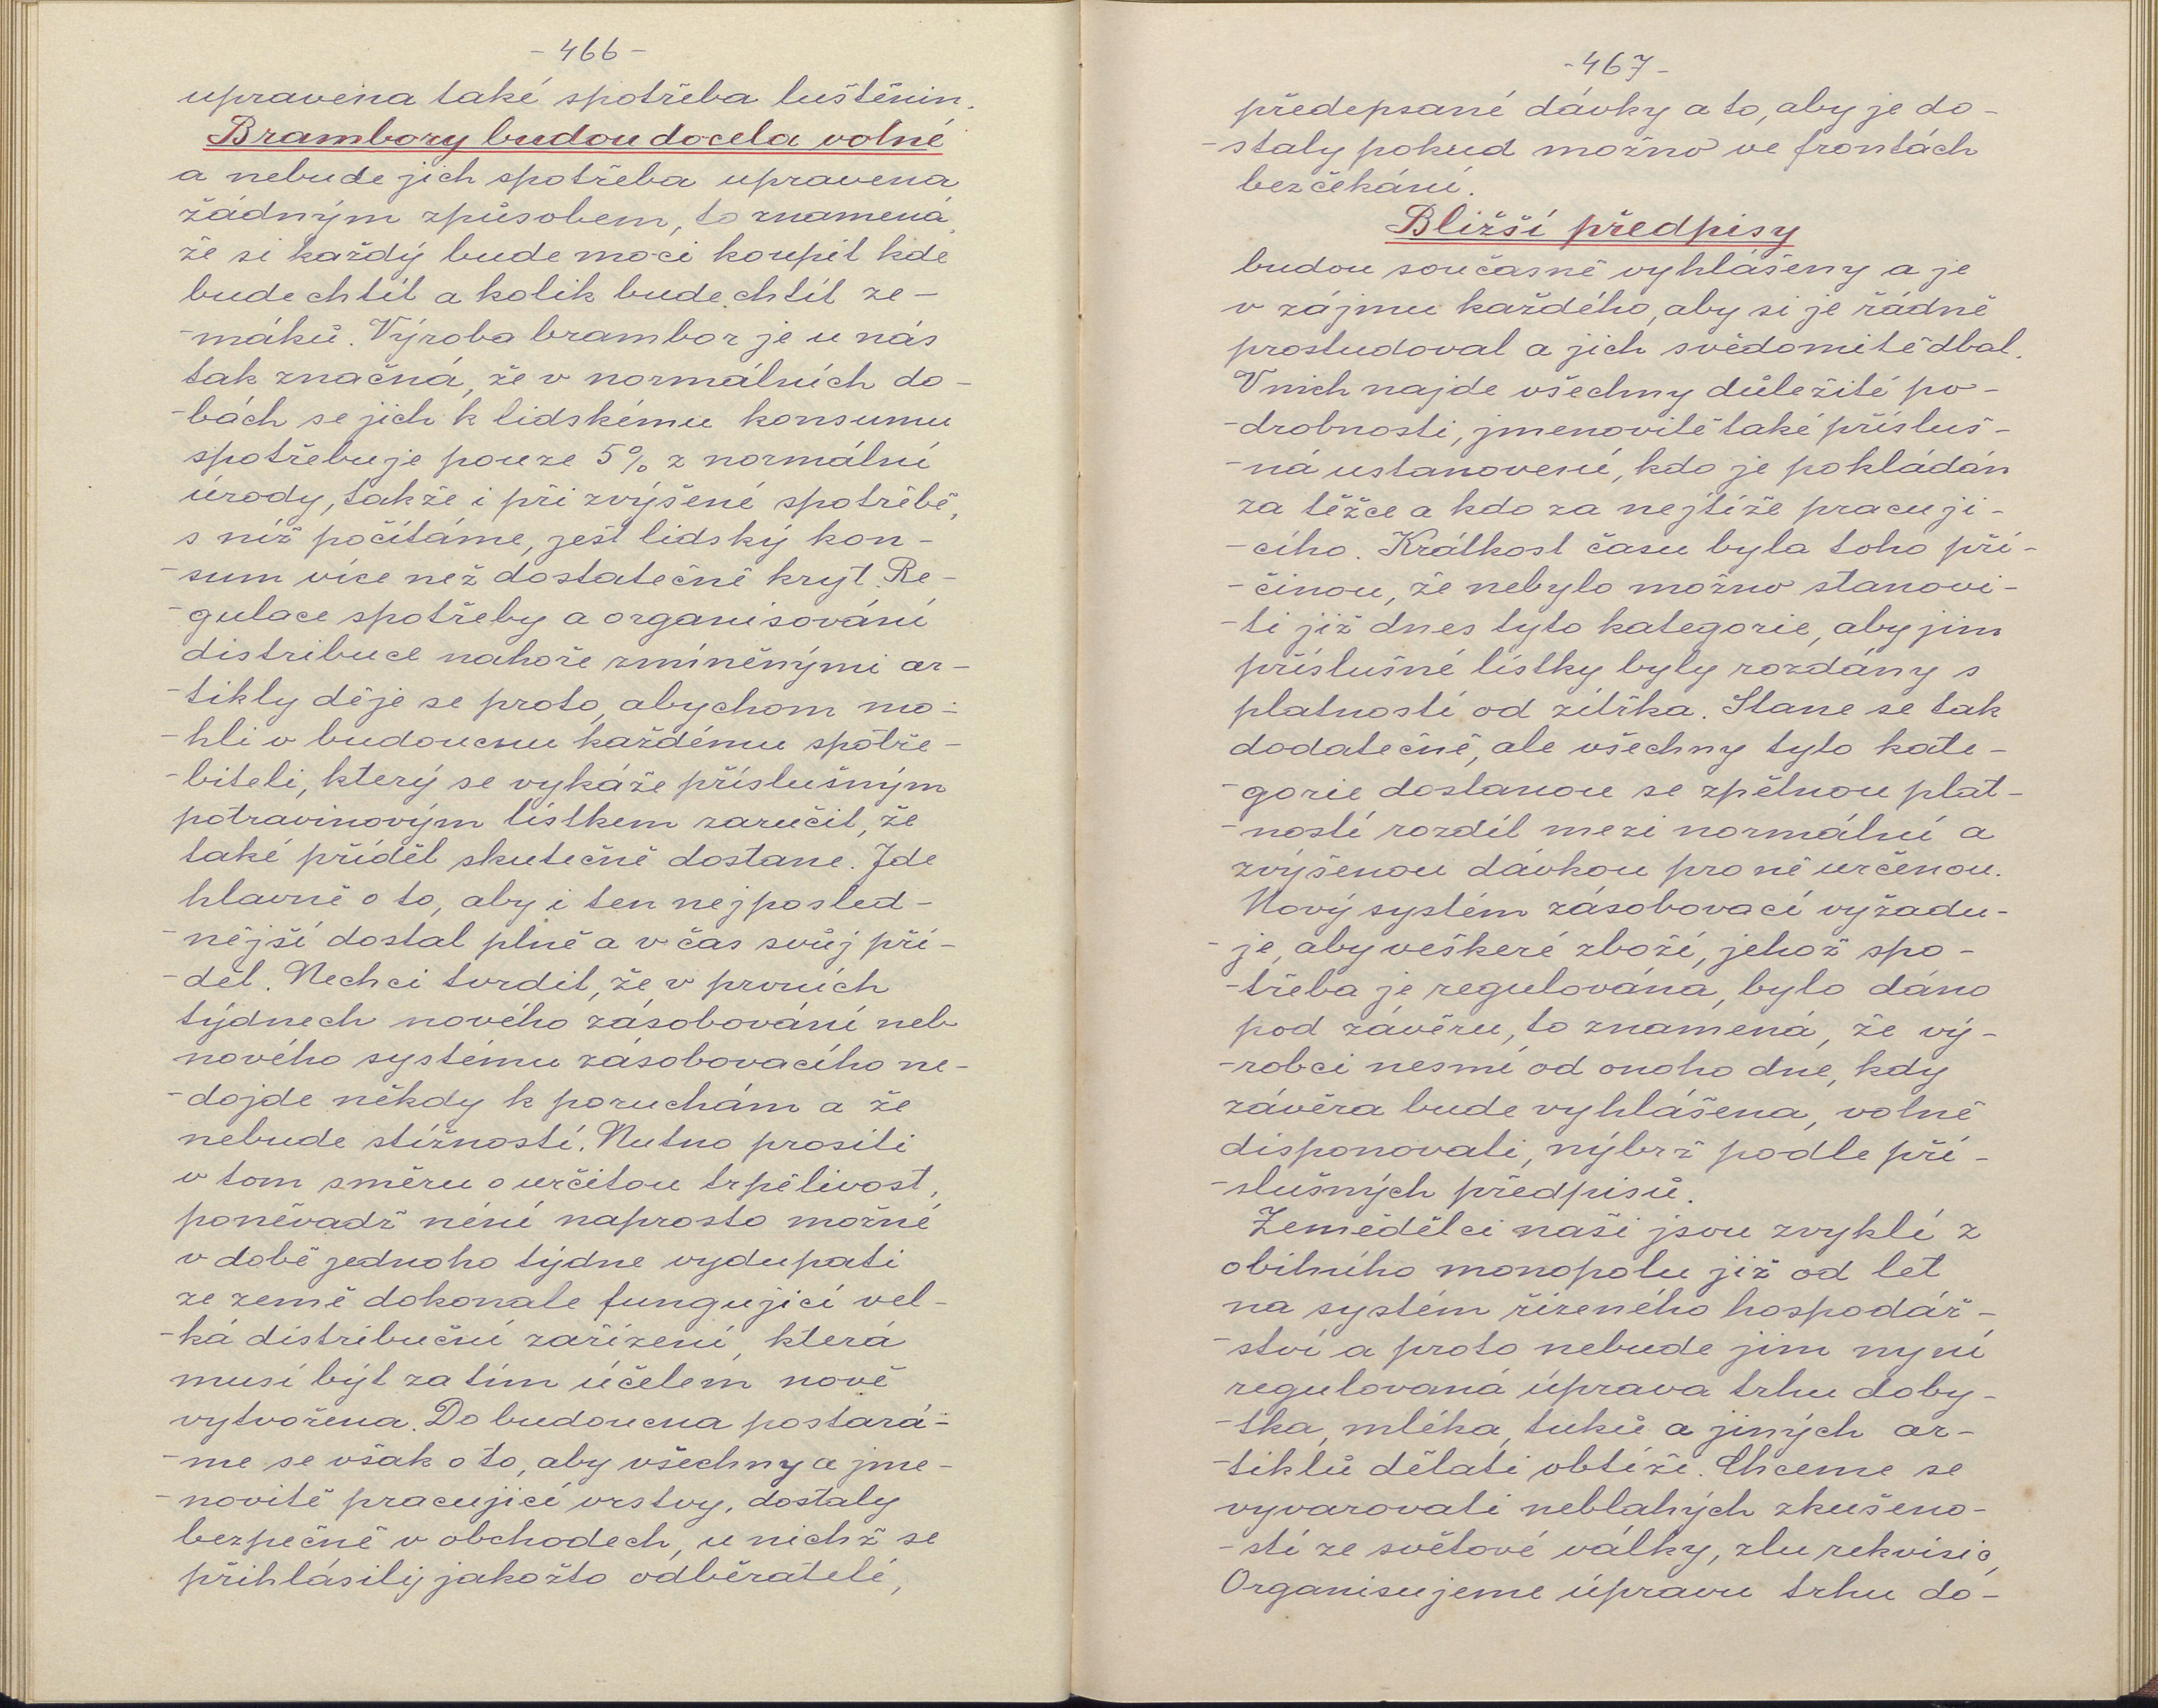 - 466 -
upravena také spotřeba luštěnin.
Brambory budou docela volné
a nebude jich spotřeba upravena
žádným způsobem, to znamená,
že si každý bude moci koupit kde
bude chtít a kolik bude chtít ze-
-máků. Výroba brambor je u nás
tak značná, že v normálních do-
-bách se jich k lidskému konsumu
spotřebuje pouze 5% z normální
úrody, takže i při zvýšené spotřebě,
s níž počítáme, jest lidský kon-
-sum více než dostatečně kryt. Re-
-gulace spotřeby a organisování
distribuce nahoře zmíněnými ar-
-tikly děje se proto, abychom mo-
-hli v budoucnu každému spotře-
-biteli, který se vykáže příslušným
potravinovým lístkem zaručit, že
také příděl skutečně dostane. Jde
hlavně o to, aby i ten nejposled-
-nější dostal plně a v čas svůj pří-
-děl. Nechci tvrdit, že v prvních
týdnech nového zásobování neb
nového systému zásobovacího ne-
-dojde někdy k poruchám a že
nebude stížností. Nutno prositi
v tom směru o určitou trpělivost,
poněvadž néní naprosto možné
v době jednoho týdne vydupati
ze země dokonale fungující vel-
-ká distribuční zařízení, která
musí být za tím účelem nově
vytvořena. Do budoucna postará-
-me se však o to, aby všechny a jme-
-novitě pracující vrstvy, dostaly
bezpečně v obchodech, u nichž se
přihlásily jakožto odběratelé,
- 467 -
předepsané dávky a to, aby je do-
-staly pokud možno ve frontách
bez čekání.
Bližší předpisy
budou současně vyhlášeny a je
v zájmu každého, aby si je řádně
prostudoval a jich svědomitě dbal.
V nich najde všechny důležité po-
-drobnosti, jmenovitě také přísluš-
-ná ustanovení, kdo je pokládán
za těžce a kdo za nejtíže pracují-
-cího. Krátkost času byla toho pří-
-činou, že nebylo možno stanovi-
-ti již dnes tyto kategorie, aby jim
příslušné lístky byly rozdány s
platností od zítřka. Stane se tak
dodatečně, ale všechny tyto kate-
-gorie dostanou se zpětnou plat-
-ností rozdíl mezi normální a
zvýšenou dávkou pro ně určenou.
Nový systém zásobovací vyžadu-
-je, aby veškeré zboží, jehož spo-
-třeba je regulována, bylo dáno
pod závěru, to znamená, že vý-
-robci nesmí od onoho dne, kdy
závěra bude vyhlášena, volně
disponovati, nýbrž podle pří-
-slušných předpisů.
Zemědělci naši jsou zvyklí z
obilního monopolu již od let
na systém řízeného hospodář-
-ství a proto nebude jim nyní
regulovaná úprava trhu doby-
-tka, mléka, tuků a jiných ar-
-tiklů dělati obtíže. Chceme se
vyvarovati neblahých zkušeno-
-stí ze světové války, zlu rekvisic,
Organisujeme úpravu trhu do-